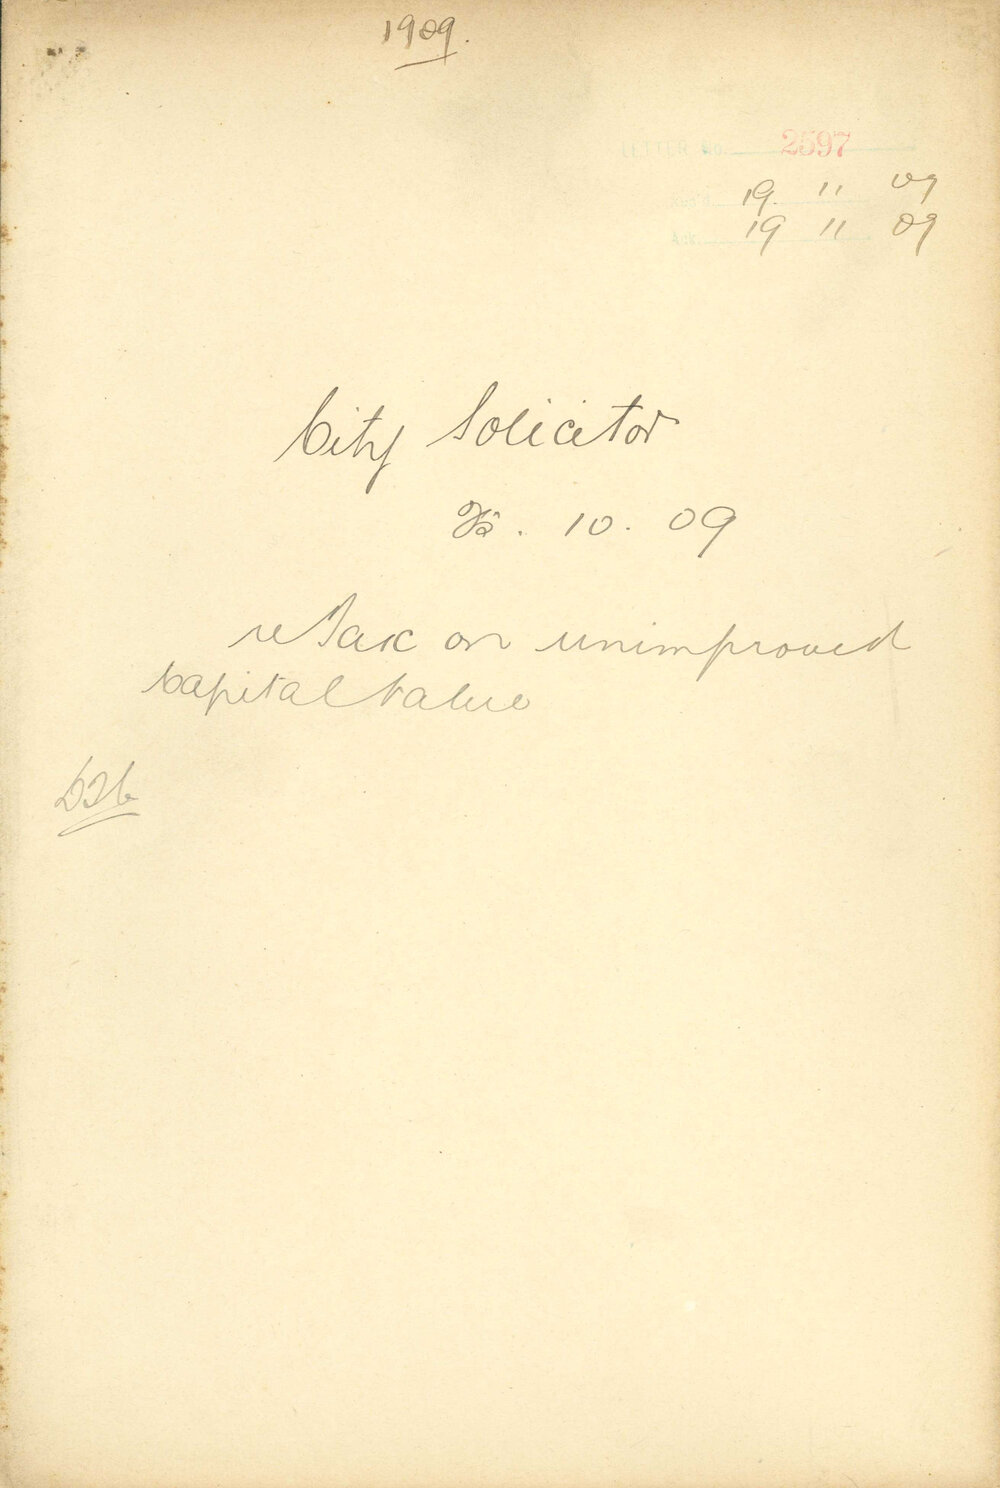 1909.
LETTER No. 2597
Rec'd. 19. 11 09
Ack. 19 11 09
City Solicitor
. 10. 09
re Tax on unimproved
Capital Value